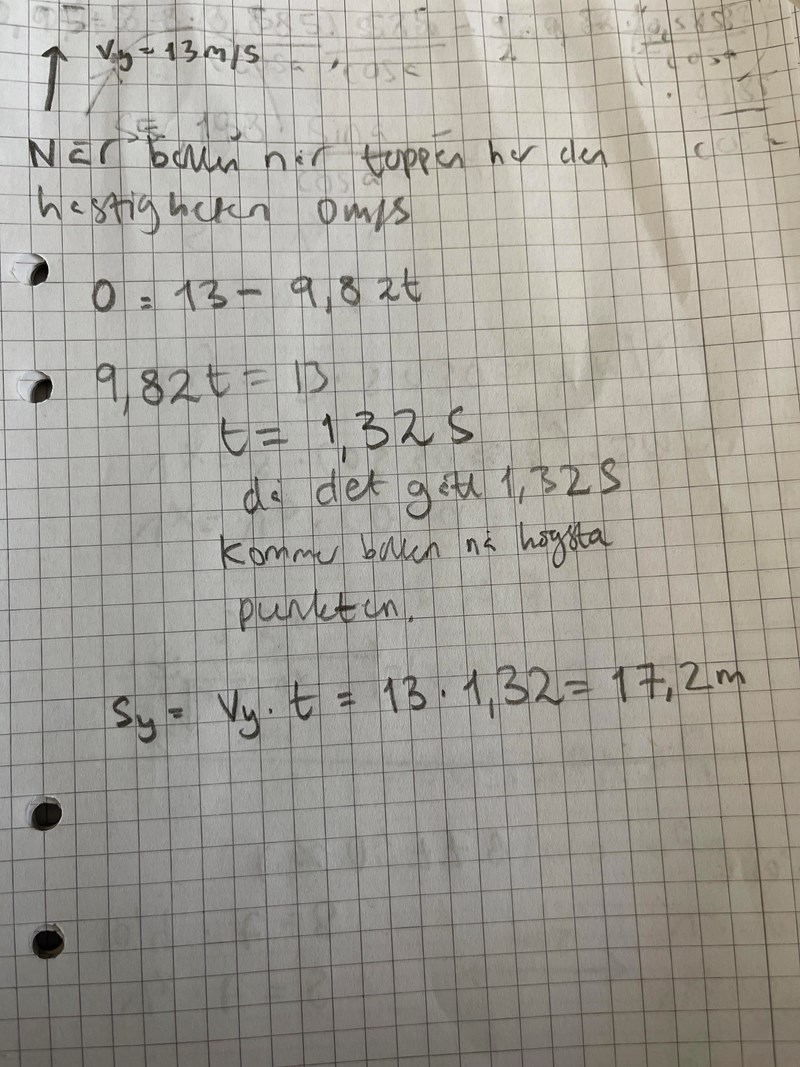 Vy = 13 m/s
När bollen når toppen har den
hastigheten 0m/s
0 = 13 - 9,82t
9,82t = 13
t = 1,32 s
då det gått 1,32 s
kommer bollen nå högsta
punkten.
Sy = Vy · t = 13 · 1,32 = 17,2m